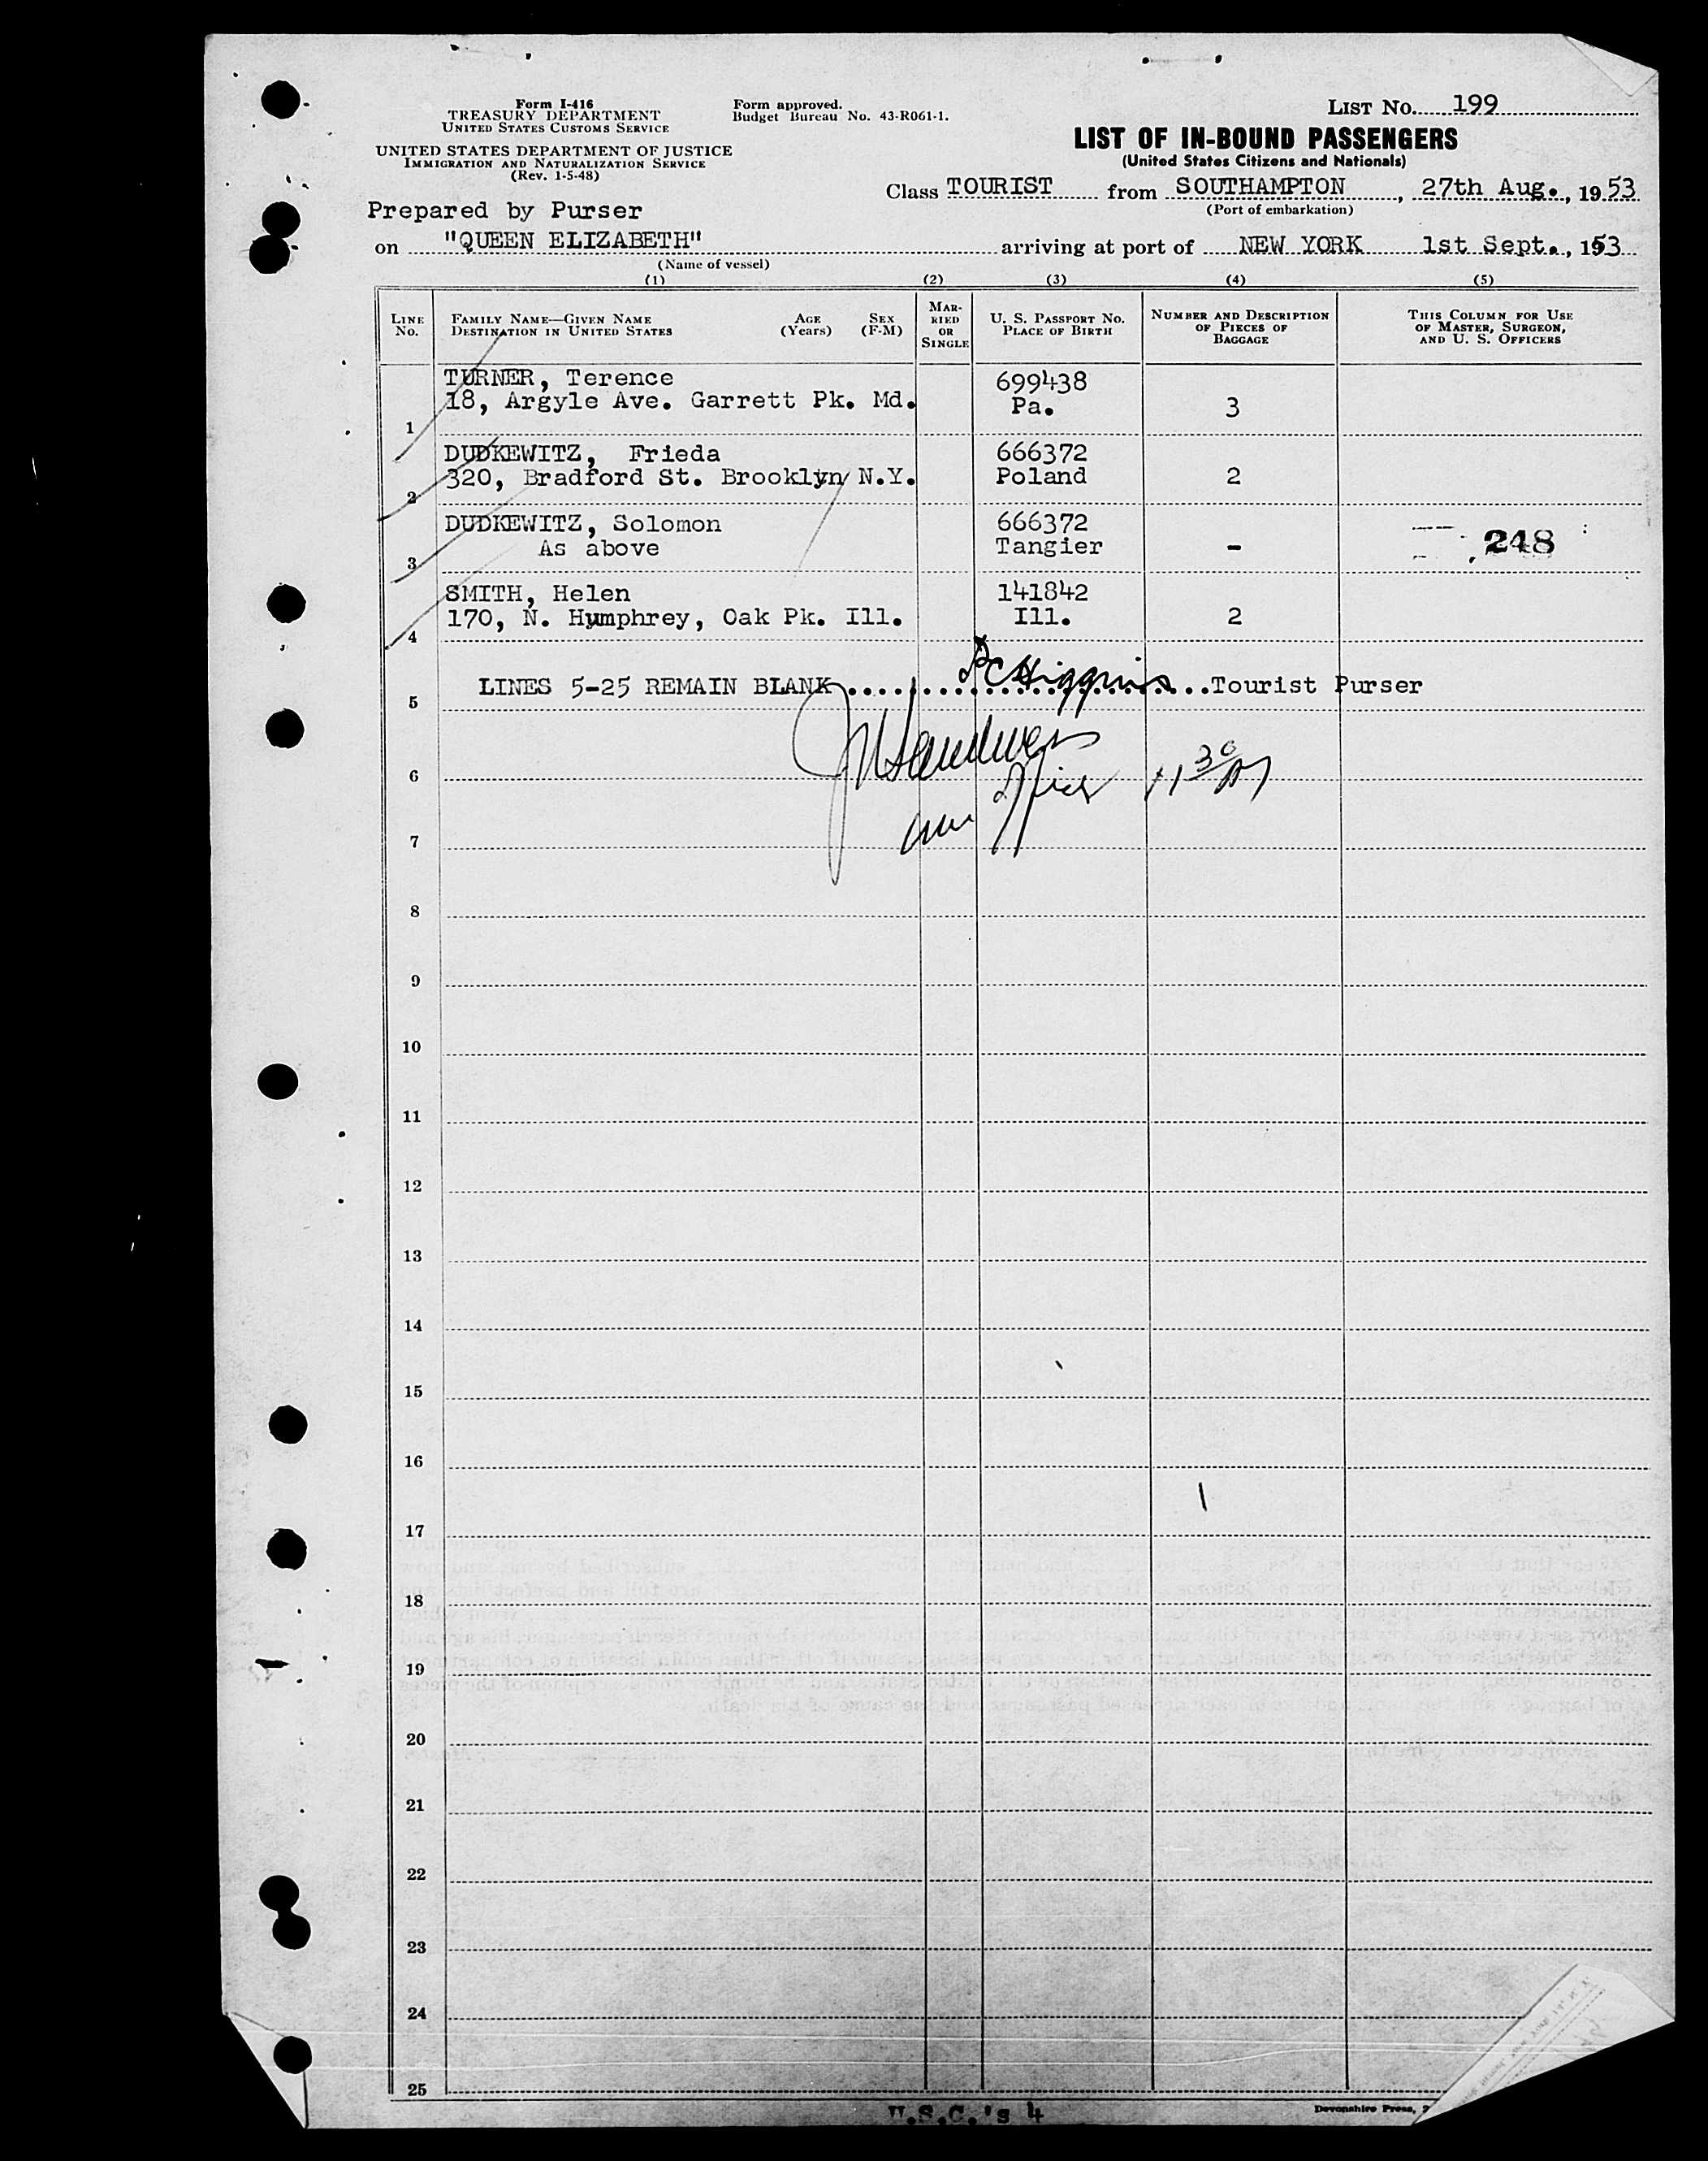 Form I-416
TREASURY DEPARTMENT
UNITED STATES CUSTOMS SERVICE
UNITED STATES DEPARTMENT OF JUSTICE
IMMIGRATION AND NATURALIZATION SERVICE
(Rev. 1-5-48)
Form approved.
Budget Bureau No. 43-R061-1.
LIST No. 199
LIST OF IN-BOUND PASSENGERS
(United States Citizens and Nationals)
Class TOURIST from SOUTHAMPTON, 27th Aug., 1953
(Port of embarkation)
Prepared by Purser
on "QUEEN ELIZABETH" arriving at port of NEW YORK 1st Sept., 1953
(Name of vessel)
(1) (2) (3) (4) (5)
LINE No. FAMILY NAME—GIVEN NAME DESTINATION IN UNITED STATES AGE (Years) SEX (F-M) MARRIED OR SINGLE U. S. PASSPORT No. PLACE OF BIRTH NUMBER AND DESCRIPTION OF PIECES OF BAGGAGE THIS COLUMN FOR USE OF MASTER, SURGEON, AND U. S. OFFICERS
TURNER, Terence 699438
1 18, Argyle Ave. Garrett Pk. Md. Pa. 3
DUDKEWITZ, Frieda 666372
2 320, Bradford St. Brooklyn N.Y. Poland 2
DUDKEWITZ, Solomon 666372
3 As above Tangier - 248
SMITH, Helen 141842
4 170, N. Humphrey, Oak Pk. Ill. Ill. 2
5 LINES 5-25 REMAIN BLANK Higgins Tourist Purser
6
7
8
9
10
11
12
13
14
15
16
17
18
19
20
21
22
23
24
25
U.S.C.'s 4
Devonshire Press,